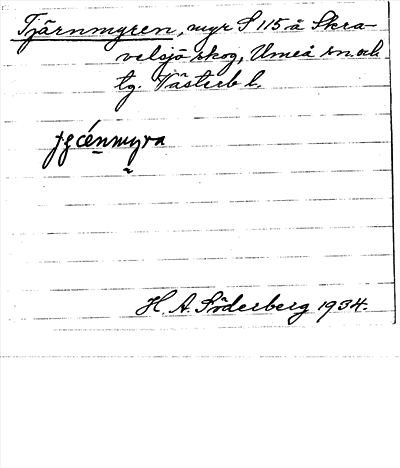 Tjärnmyren, myr S 115 å Skra-
velsjö skog, Umeå sn. och
tg. Västerb l.
H. A. Söderberg 1934.